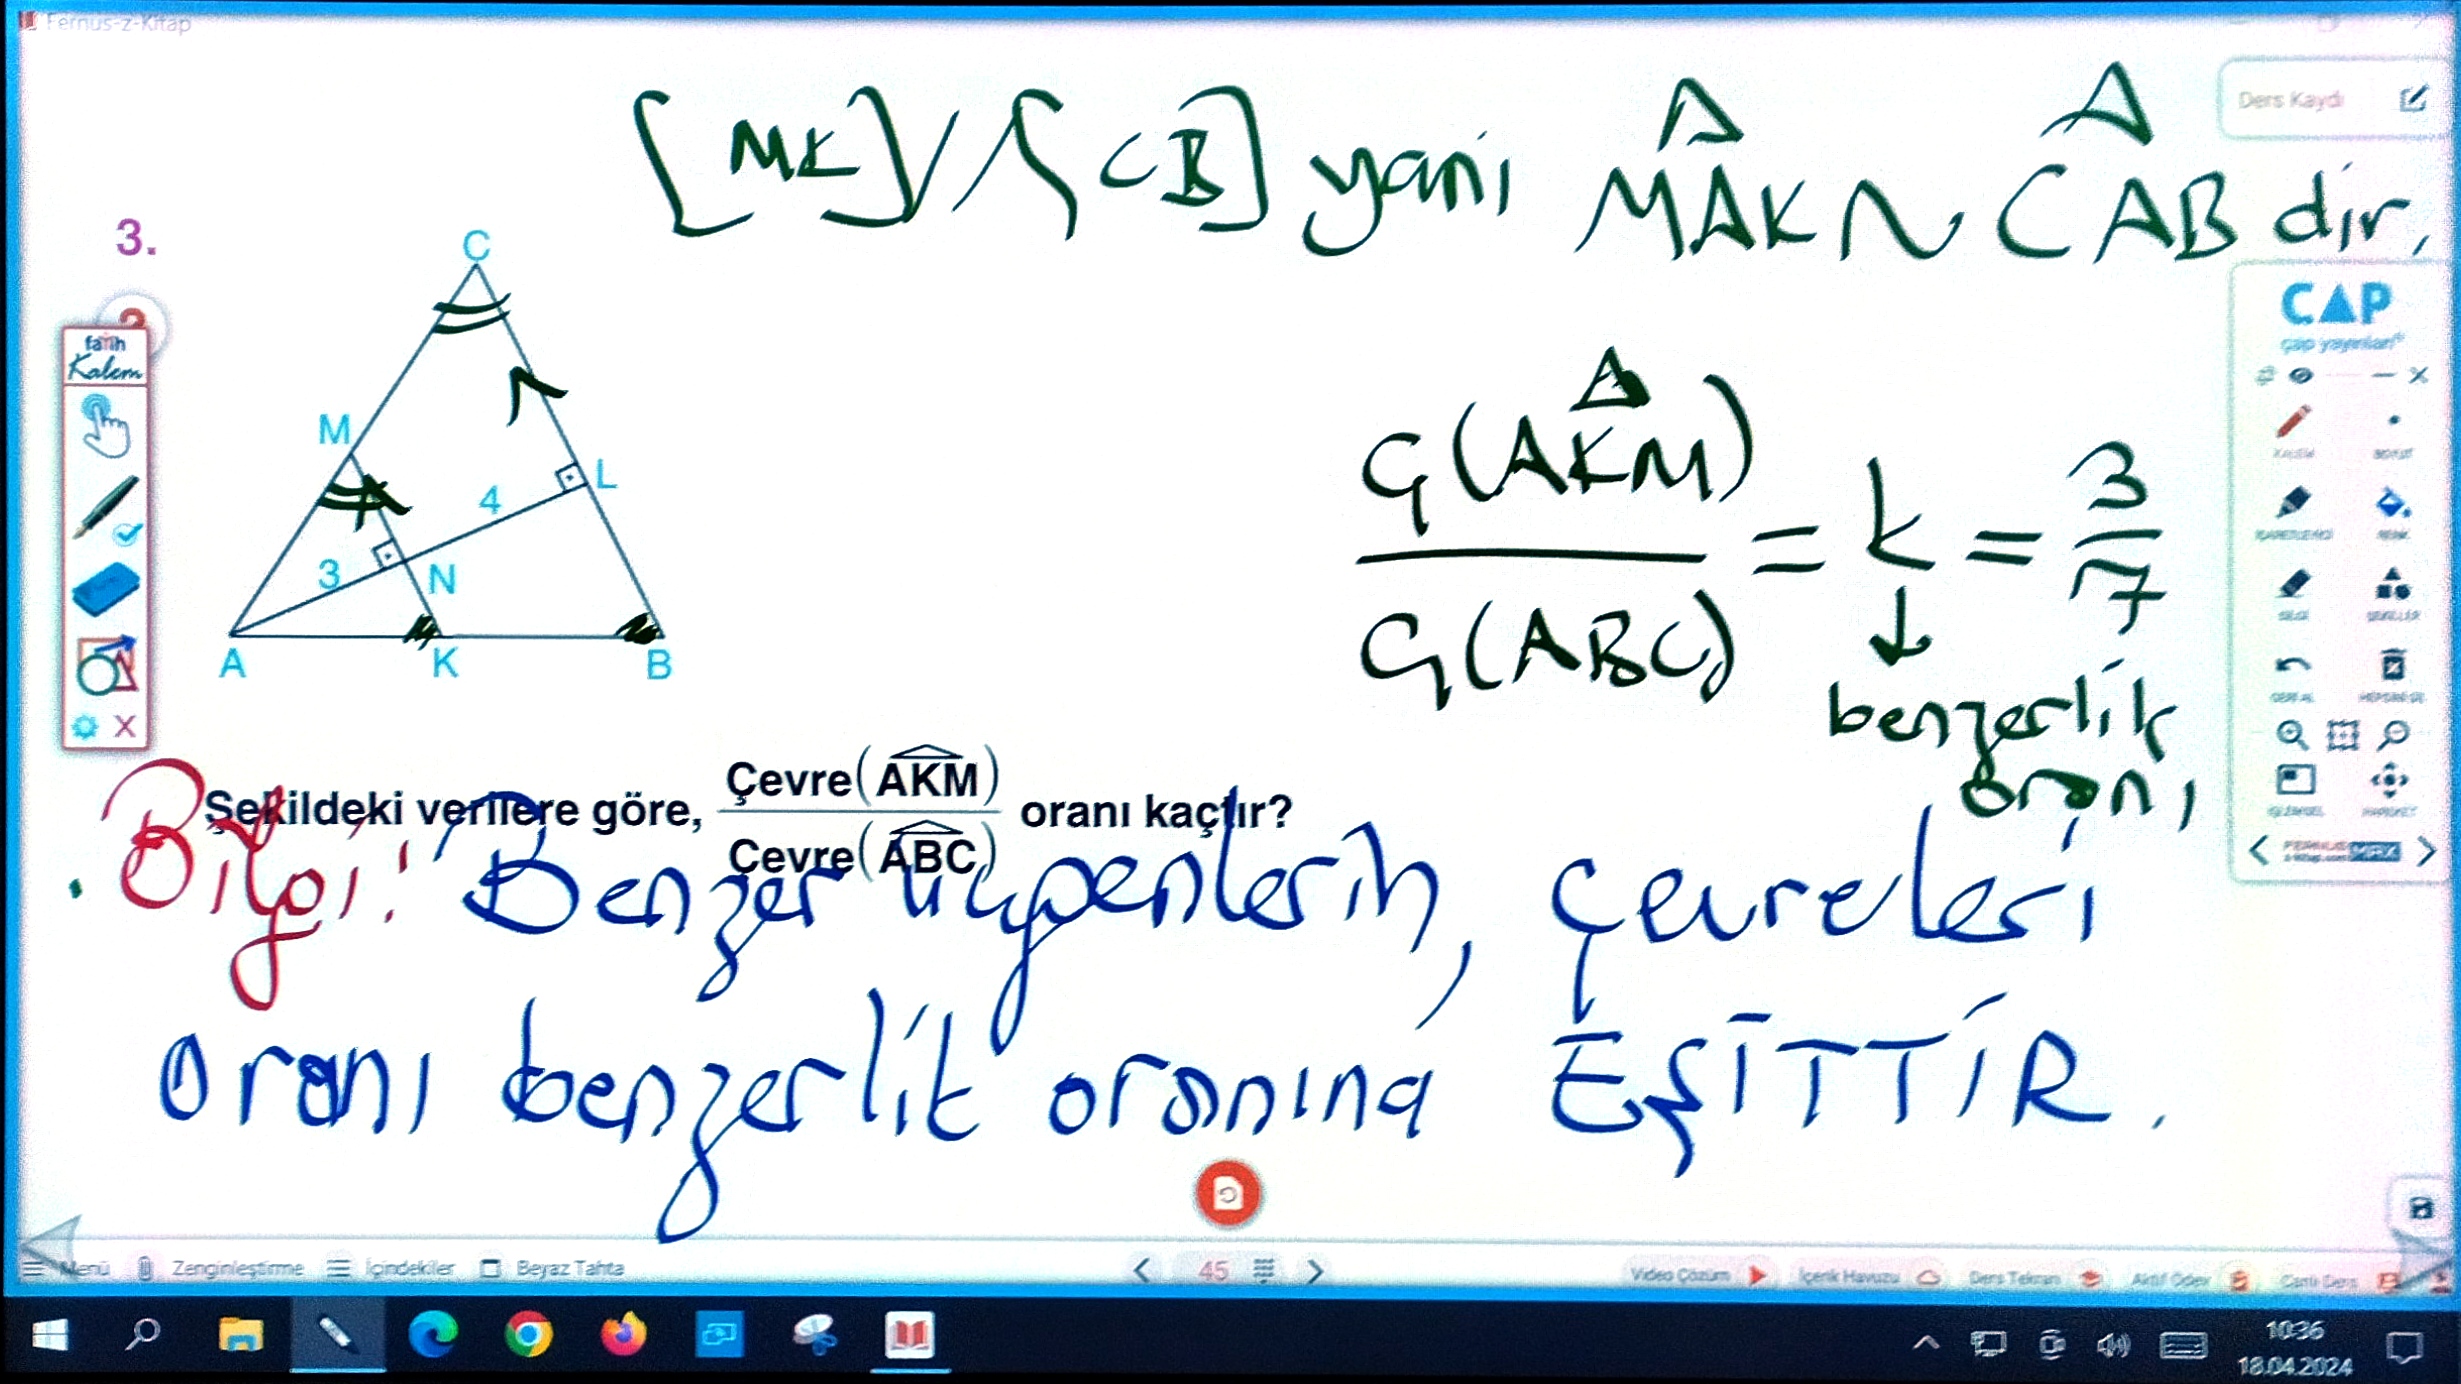 Fernus-z-Kitap
[MK] // [CB] yani MAK ~ CAB dir.
Ders Kaydı
3.
C
M
L
4
3
N
A
K
B
fatih
Kalem
CAP
çap yayınları
Ç(AKM)
= k = 3/7
Ç(ABC)
benzerlik
oranı
Şekildeki verilere göre, Çevre(AKM) / Çevre(ABC) oranı kaçtır?
Bilgi: Benzer üçgenlerin, çevreleri
oranı benzerlik oranına EŞİTTİR.
Menü Zenginleştirme İçindekiler Beyaz Tahta 45 Video Çözüm İçerik Havuzu Ders Tekrarı Aktif Ödev Canlı Ders
10:36
18.04.2024